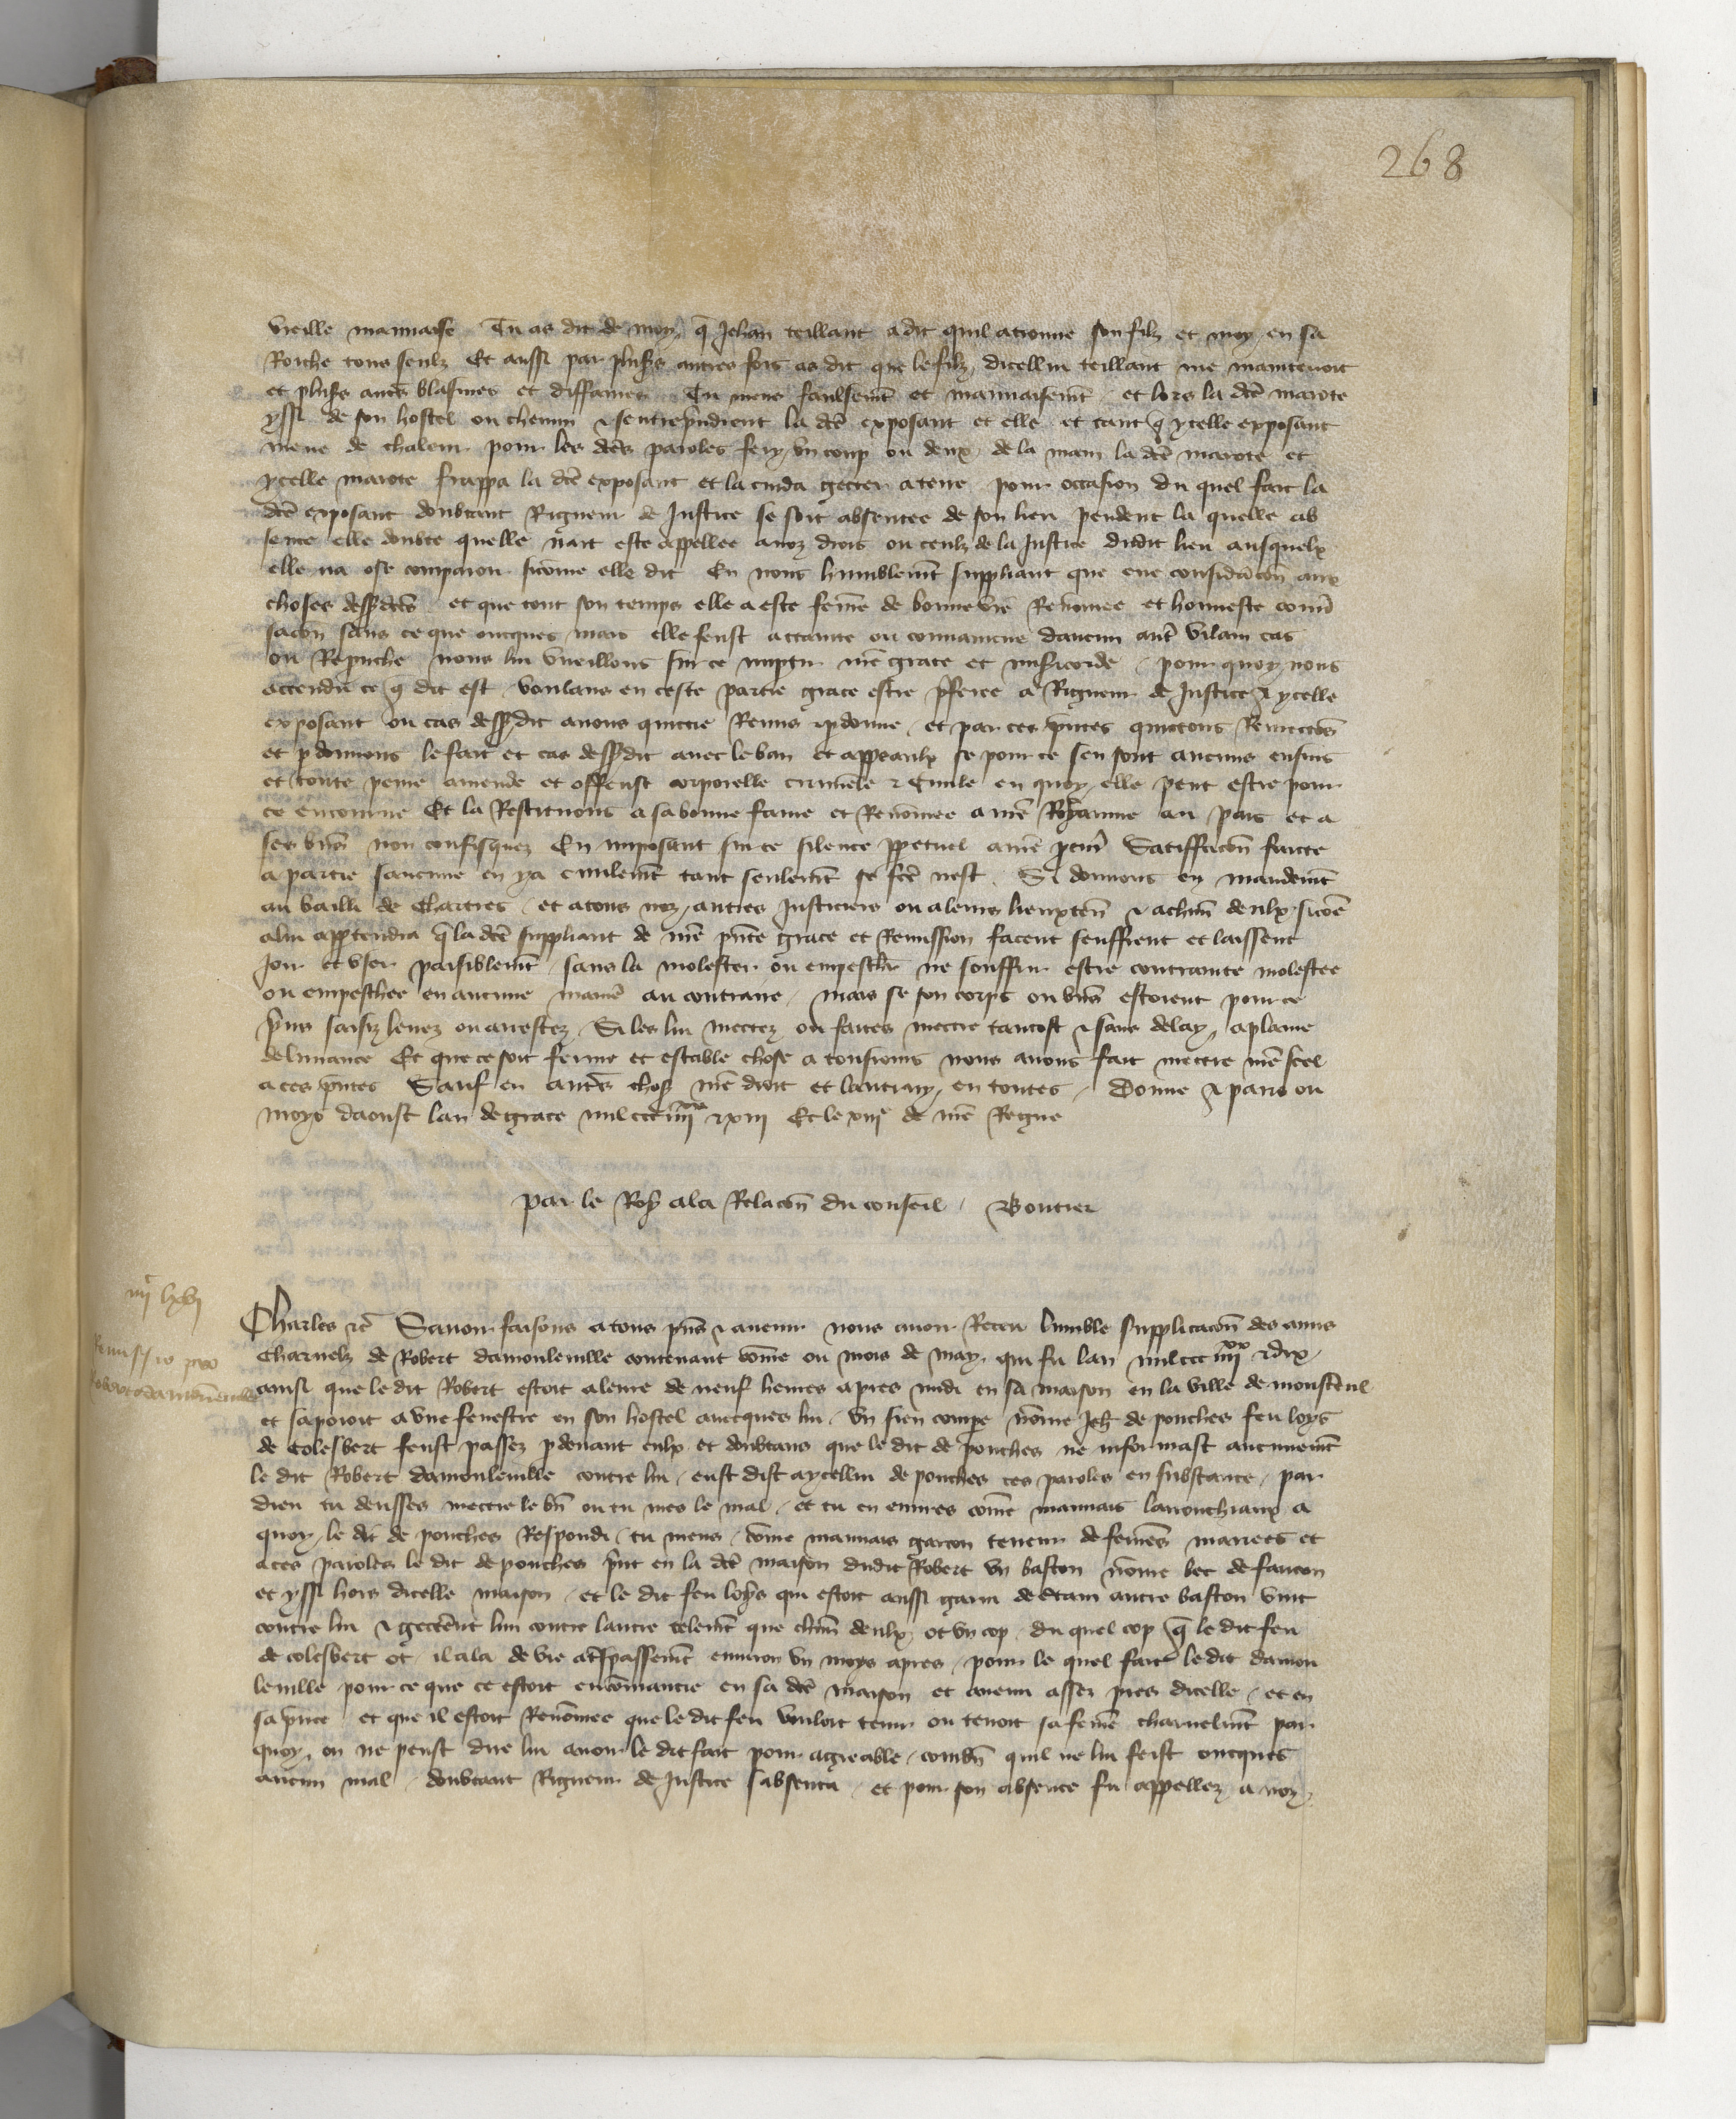 268
vieille mauvaise Tu as dit de moy q̄ Jehan teillant a dit quil a trouve son filz et moy en sa
Roiche tous seulz Et aussi par plus̄rs autres fois as dit que le filz dicellui teillant me maintenoit
et plus̄rs aut̄s blasmes et diffames Tu mens faulsem̄t et mauvaisem̄t et lors la dc̄e marote
yssi de son hostel ou chemin & sentrep̄ndient la dc̄e exposant et elle et tant q̄ ycelle exposant
meue de chaleur pour les dc̄es paroles fery un coup ou deux de la main la dc̄e marote et
ycelle marote frappa la dc̄e exposant et la cuida getter a terre pour occasion du quel fait la
dc̄e exposant doubtant Rigueur de Justice se soit absentee de son lieu pendent la quelle ab
sence elle doubte quelle nait este appellee a noz drois ou ceulz de la Justice dudit lieu ausquelx
elle na ose comparoir sicōme elle dit En nous humblem̄t suppliant que eue consid̄acōn aux
choses dess̄dc̄es et que tout son temps elle a este fēme de bonne vie Renōmee et honneste conv̄
sacōn sans ce que oncques mais elle feust attainte ou convaincue daucun aut̄ vilain cas
ou Reprouche nous lui vueillons sur ce impt̄ir n̄re grace et mis̄icorde pour quoy nous
attendu ce q̄ dit est voulans en ceste partie grace estre p̄feree a Rigueur de Justice A ycelle
exposant ou cas dess̄dit avons quictie Remis & p̄donne et par ces p̄ntes quictons Remettōs
et p̄donnons le fait et cas dess̄dit avec le ban et appeaulx se pour ce sen sont aucuns ensuis
et toute peine amende et offense corporelle crimīele & Civile en quoy elle peut estre pour
ce encourue Et la Restituons a sa bonne fame et Renōmee a n̄re Royaume au pais et a
ses bn̄s non confisquez En imposant sur ce silence p̄petuel a n̄re p̄cur̄ Satiffacōn faicte
a partie saucune en y a civilem̄t tant seulem̄t se fc̄e nest Si donnons en mandem̄t
au bailli de Chartres et a tous noz autres Justiciers ou a leurs lieuxten̄ & a chūn deulx sicōe
a lui app̄tendra q̄ la dc̄e suppliant de n̄re p̄nte grace et Remission facent seuffrent et laissent
Joir et user paisiblem̄t sans la molester ou empesch̄r ne souffrir estre contrainte molestee
ou empeschee en aucune manīe au contraire mais se son corps ou bn̄s estoient pour ce
p̄ns saisiz levez ou arrestez Si les lui mettez ou faites mettre tantost & sans delay a plaine
delivrance Et que ce soit ferme et estable chose a tousiours nous avons fait mettre n̄re scel
a ces p̄ntes Sauf en aut̄s chos̄ n̄re droit et lautruy en toutes Donne A paris ou
moys daoust lan de grace mil ccc iiii^xx & xiii Et le xiii^e de n̄re Regne
Par le Roy a la Relacōn du conseil Boutier
iiii^c lxvi
Remissio pro
Roberto damouleville
Charles &c̄ Savoir faisons a tous p̄ns & avenir nous avoir Receu lumble supplicacōn des amis
Charnelz de Robert damouleville contenant cōme ou mois de may qui fu lan mil ccc iiii^xx & dix
ainsi que le dit Robert estoit a leure de neuf heures apres midi en sa maison en la ville de monsterul
et sapoioit a une fenestre en son hostel avecques lui un sien compe nōme Jeh̄ de ponches feu loys
de Colesbert feust passez p̄ devant eulx et doubtans que le dit de ponches ne informast aucunem̄t
le dit Robert damouleville contre lui eust dist a ycellui de ponches ces paroles en substance par
dieu tu deusses mettre le bn̄ ou tu mes le mal et tu en euvres cōme mauvais larronchiaux a
quoy le dit de ponches Respondi tu mens cōme mauvais garcon teneur de fēmes mariees et
a ces paroles le dit de ponches p̄nt en la dc̄e maison dudit Robert un baston nōme bec de faucon
et yssi hors dicelle maison et le dit feu loys qui estoit aussi garni de dtain autre baston vint
contre lui & gettēnt lun contre lautre telem̄t que chūn deulx ot un cop du quel cop q̄ le dit feu
de colesbert ot il ala de vie a t̄spassem̄t environ un moys apres pour le quel fait le dit damou
leville pour ce que ce estoit encōmancie en sa dc̄e maison et avenu assez pres dicelle et en
sa p̄nce et que il estoit Renōmee que le dit feu vouloit tenir ou tenoit sa fēme charnelm̄t par
quoy on ne peust dire lui avoir le dit fait pour agreable combn̄ quil ne lui feist oncques
aucun mal doubtant Rigueur de Justice sabsenta et pour son absence fu appellez a noz